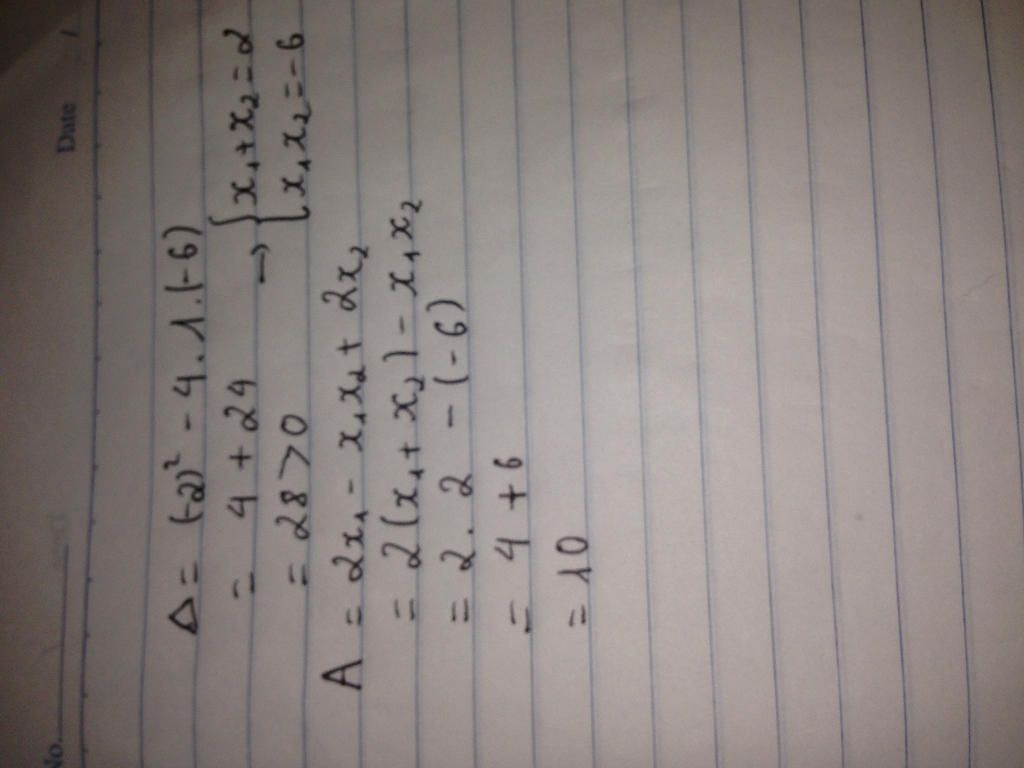 No. Date /
Δ = (-2)² - 4.1.(-6)
= 4 + 24 → { x₁ + x₂ = 2
= 28 > 0 x₁x₂ = -6
A = 2x₁ - x₁x₂ + 2x₂
= 2(x₁ + x₂) - x₁x₂
= 2.2 - (-6)
= 4 + 6
= 10